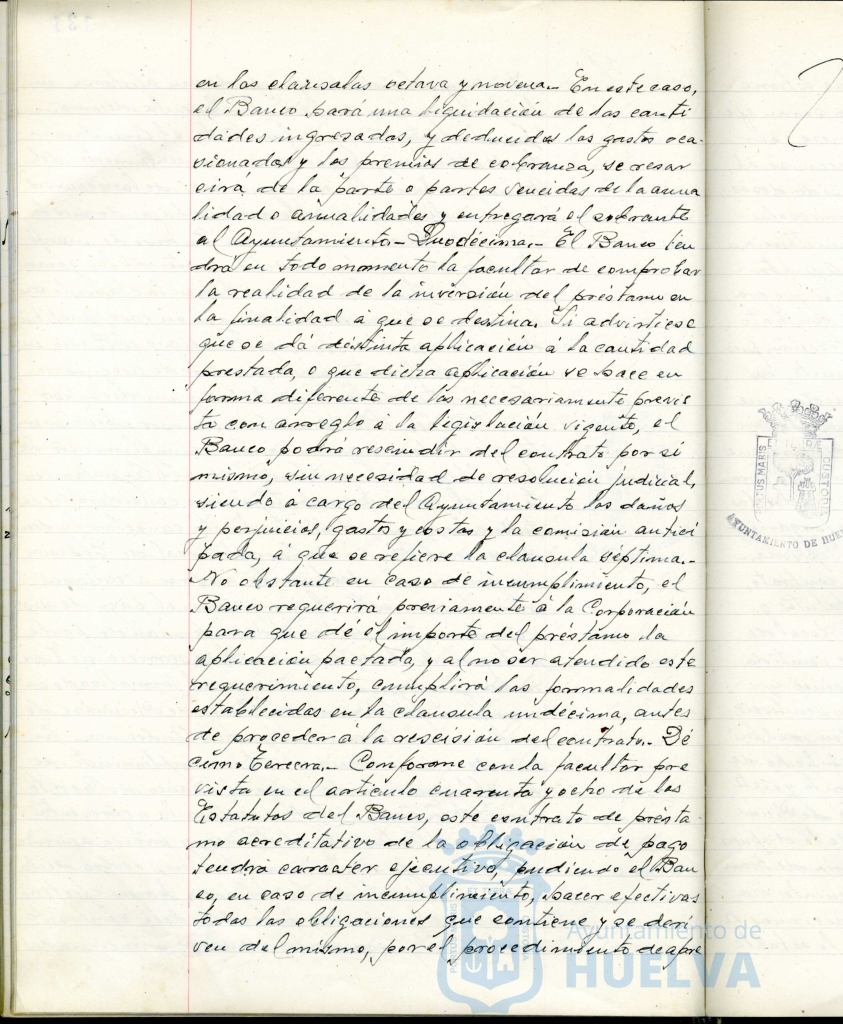 en las clausulas octava y novena.- En este caso,
el Banco hará una liquidación de las canti
dades ingresadas, y deducidos los gastos oca-
sionados y los premios de cobranza, se resar
cirá de la parte o partes vencidas de la anua
lidad o anualidades y entregará el sobrante
al Ayuntamiento.- Duodécima.- El Banco ten
drá en todo momento la facultad de comprobar
la realidad de la inversión del préstamo en
la finalidad á que se destina. Si advirtiese
que se dá distinta aplicación á la cantidad
prestada, o que dicha aplicación se hace en
forma diferente de las necesariamente previs
ta con arreglo á la legislación vigente, el
Banco podrá rescindir del contrato por sí
mismo, sin necesidad de resolución judicial,
siendo á cargo del Ayuntamiento los daños
y perjuicios, gastos y costas y la comisión antici
pada, á que se refiere la clausula séptima.-
No obstante en caso de incumplimiento, el
Banco requerirá previamente á la Corporación
para que dé el importe del préstamo la
aplicación pactada, y al no ser atendido este
requerimiento, cumplirá las formalidades
establecidas en la clausula undécima, antes
de proceder á la rescisión del contrato.- Dé
cimo tercera.- Conforme con la facultad pre
vista en el articulo cuarenta y ocho de los
Estatutos del Banco, este contrato de présta
mo acreditativo de la obligación de pago
tendrá caracter ejecutivo, pudiendo el Ban
co, en caso de incumplimiento, hacer efectivas
todas las obligaciones que contiene y se deri
ven del mismo, por el procedimiento de apre
PORTUS MARIS
CUSTODIA
AYUNTAMIENTO DE HUE
Ayuntamiento de
HUELVA